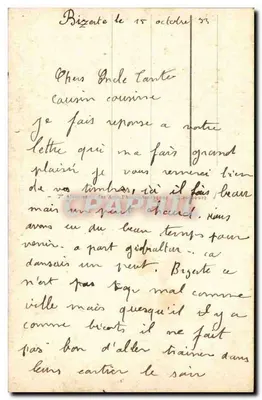 Bizerte le 15 octobre 33
Chers Oncle Tante
cousin cousine
je fais reponse a votre
lettre qui ma fais grand
plaisir je vous remerci bien
de vos timbres, ici il fais beau
mais un peut chaud. nous
avons eu du beau temps pour
venir. a part gibraltar ca
dansais un peut. Bizerte ce
n'est pas trop mal comme
ville mais quesqu'il il y a
comme bicots il ne fait
pas bon d'aller trainer dans
leurs cartier le soir